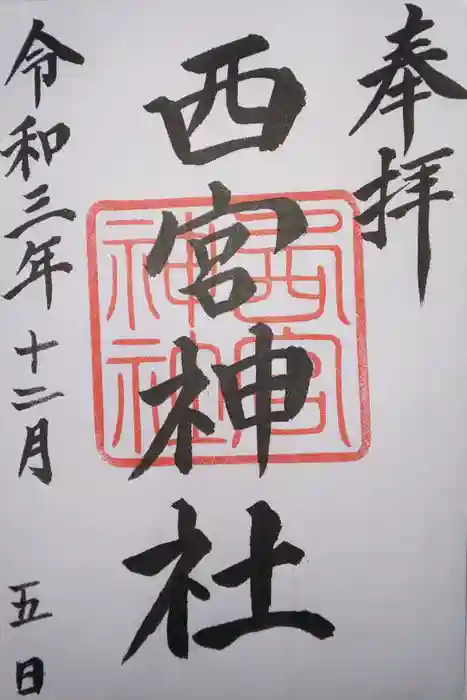 奉拝
西宮神社
西宮
神社
令和三年十二月五日